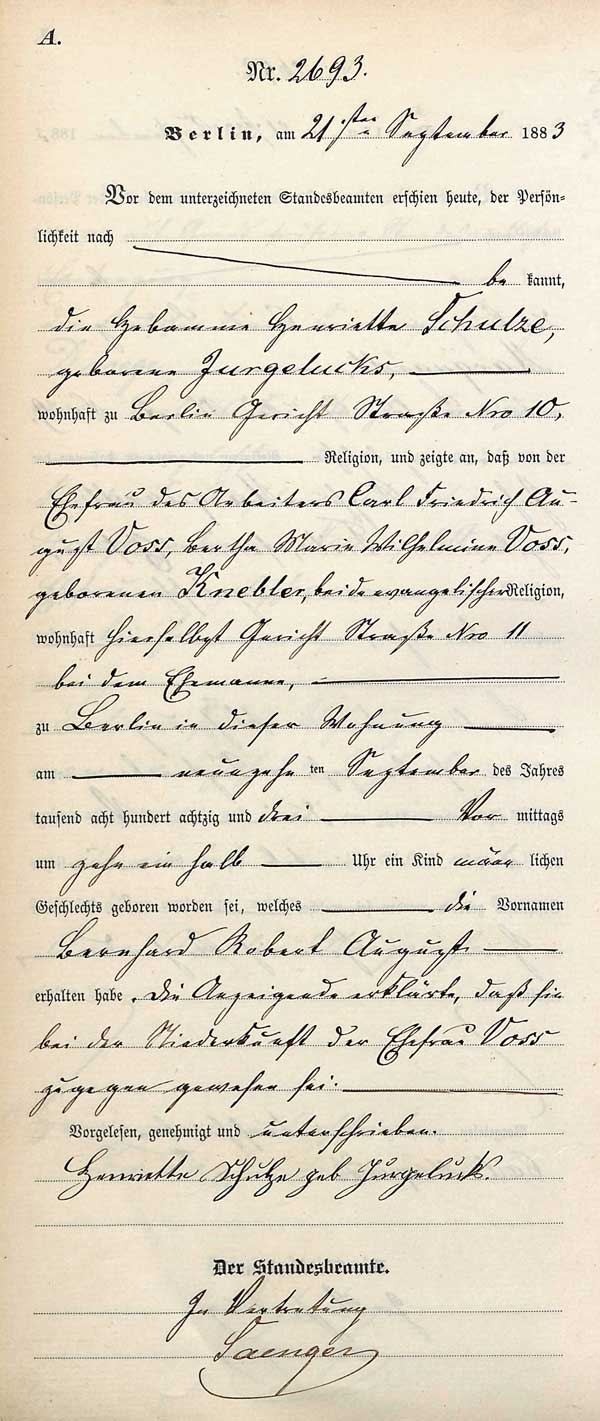 A.
Nr. 2693.
Berlin, am 21sten September 1883
Vor dem unterzeichneten Standesbeamten erschien heute, der Persön-
lichkeit nach
be kannt,
die Hebamme Henriette Schulze,
geborene Jurgelucks,
wohnhaft zu Berlin Gericht Straße Nro 10,
Religion, und zeigte an, daß von der
Ehefrau des Arbeiters Carl Friedrich Au-
gust Voss, Bertha Marie Wilhelmine Voss,
geborenen Knebler, beide evangelischer Religion,
wohnhaft hierselbst Gericht Straße Nro 11
bei dem Ehemanne,
zu Berlin in dieser Wohnung
am neunzehn ten September des Jahres
tausend acht hundert achtzig und drei Vor mittags
um zehn ein halb Uhr ein Kind männ lichen
Geschlechts geboren worden sei, welches die Vornamen
Bernhard Robert August
erhalten habe. Die Anzeigende erklärte, daß sie
bei der Niederkunft der Ehefrau Voss
zugegen gewesen sei.
Vorgelesen, genehmigt und unterschrieben.
Henriette Schulze geb Jurgeluck.
Der Standesbeamte.
In Vertretung
Saenger